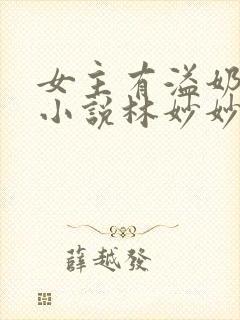 女主有溢奶
小說林妙妙
薛越發